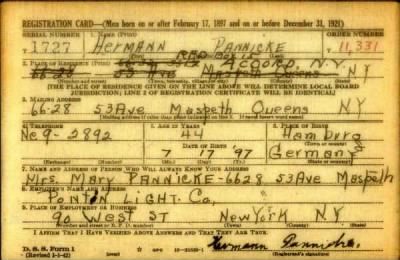 REGISTRATION CARD—(Men born on or after February 17, 1897 and on or before December 31, 1921)
SERIAL NUMBER 1. NAME (Print) ORDER NUMBER
T 1727 Hermann Pannicke T 11,331
RFD Box
2. PLACE OF RESIDENCE (Print) Accord, N.Y.
66-28 53 Ave Maspeth Queens NY
[THE PLACE OF RESIDENCE GIVEN ON THE LINE ABOVE WILL DETERMINE LOCAL BOARD
JURISDICTION; LINE 2 OF REGISTRATION CERTIFICATE WILL BE IDENTICAL]
3. MAILING ADDRESS
66-28 53 Ave Maspeth Queens NY
[Mailing address if other than place indicated on line 2. If same insert word same]
4. TELEPHONE 5. AGE IN YEARS 6. PLACE OF BIRTH
Ne 9-2892 44 Hamburg
DATE OF BIRTH (Town or county)
7 17 97 Germany
(Exchange) (Number) (Mo.) (Day) (Yr.) (State or country)
7. NAME AND ADDRESS OF PERSON WHO WILL ALWAYS KNOW YOUR ADDRESS
Mrs. Mary Pannicke-6628 53 Ave Maspeth
8. EMPLOYER'S NAME AND ADDRESS
Ponton Light. Co,
9. PLACE OF EMPLOYMENT OR BUSINESS
90 West St New York N.Y.
(Number and street or R. F. D. number) (Town) (County) (State)
I AFFIRM THAT I HAVE VERIFIED ABOVE ANSWERS AND THAT THEY ARE TRUE.
D. S. S. Form 1
(Revised 1-1-42) (over) Hermann Pannicke